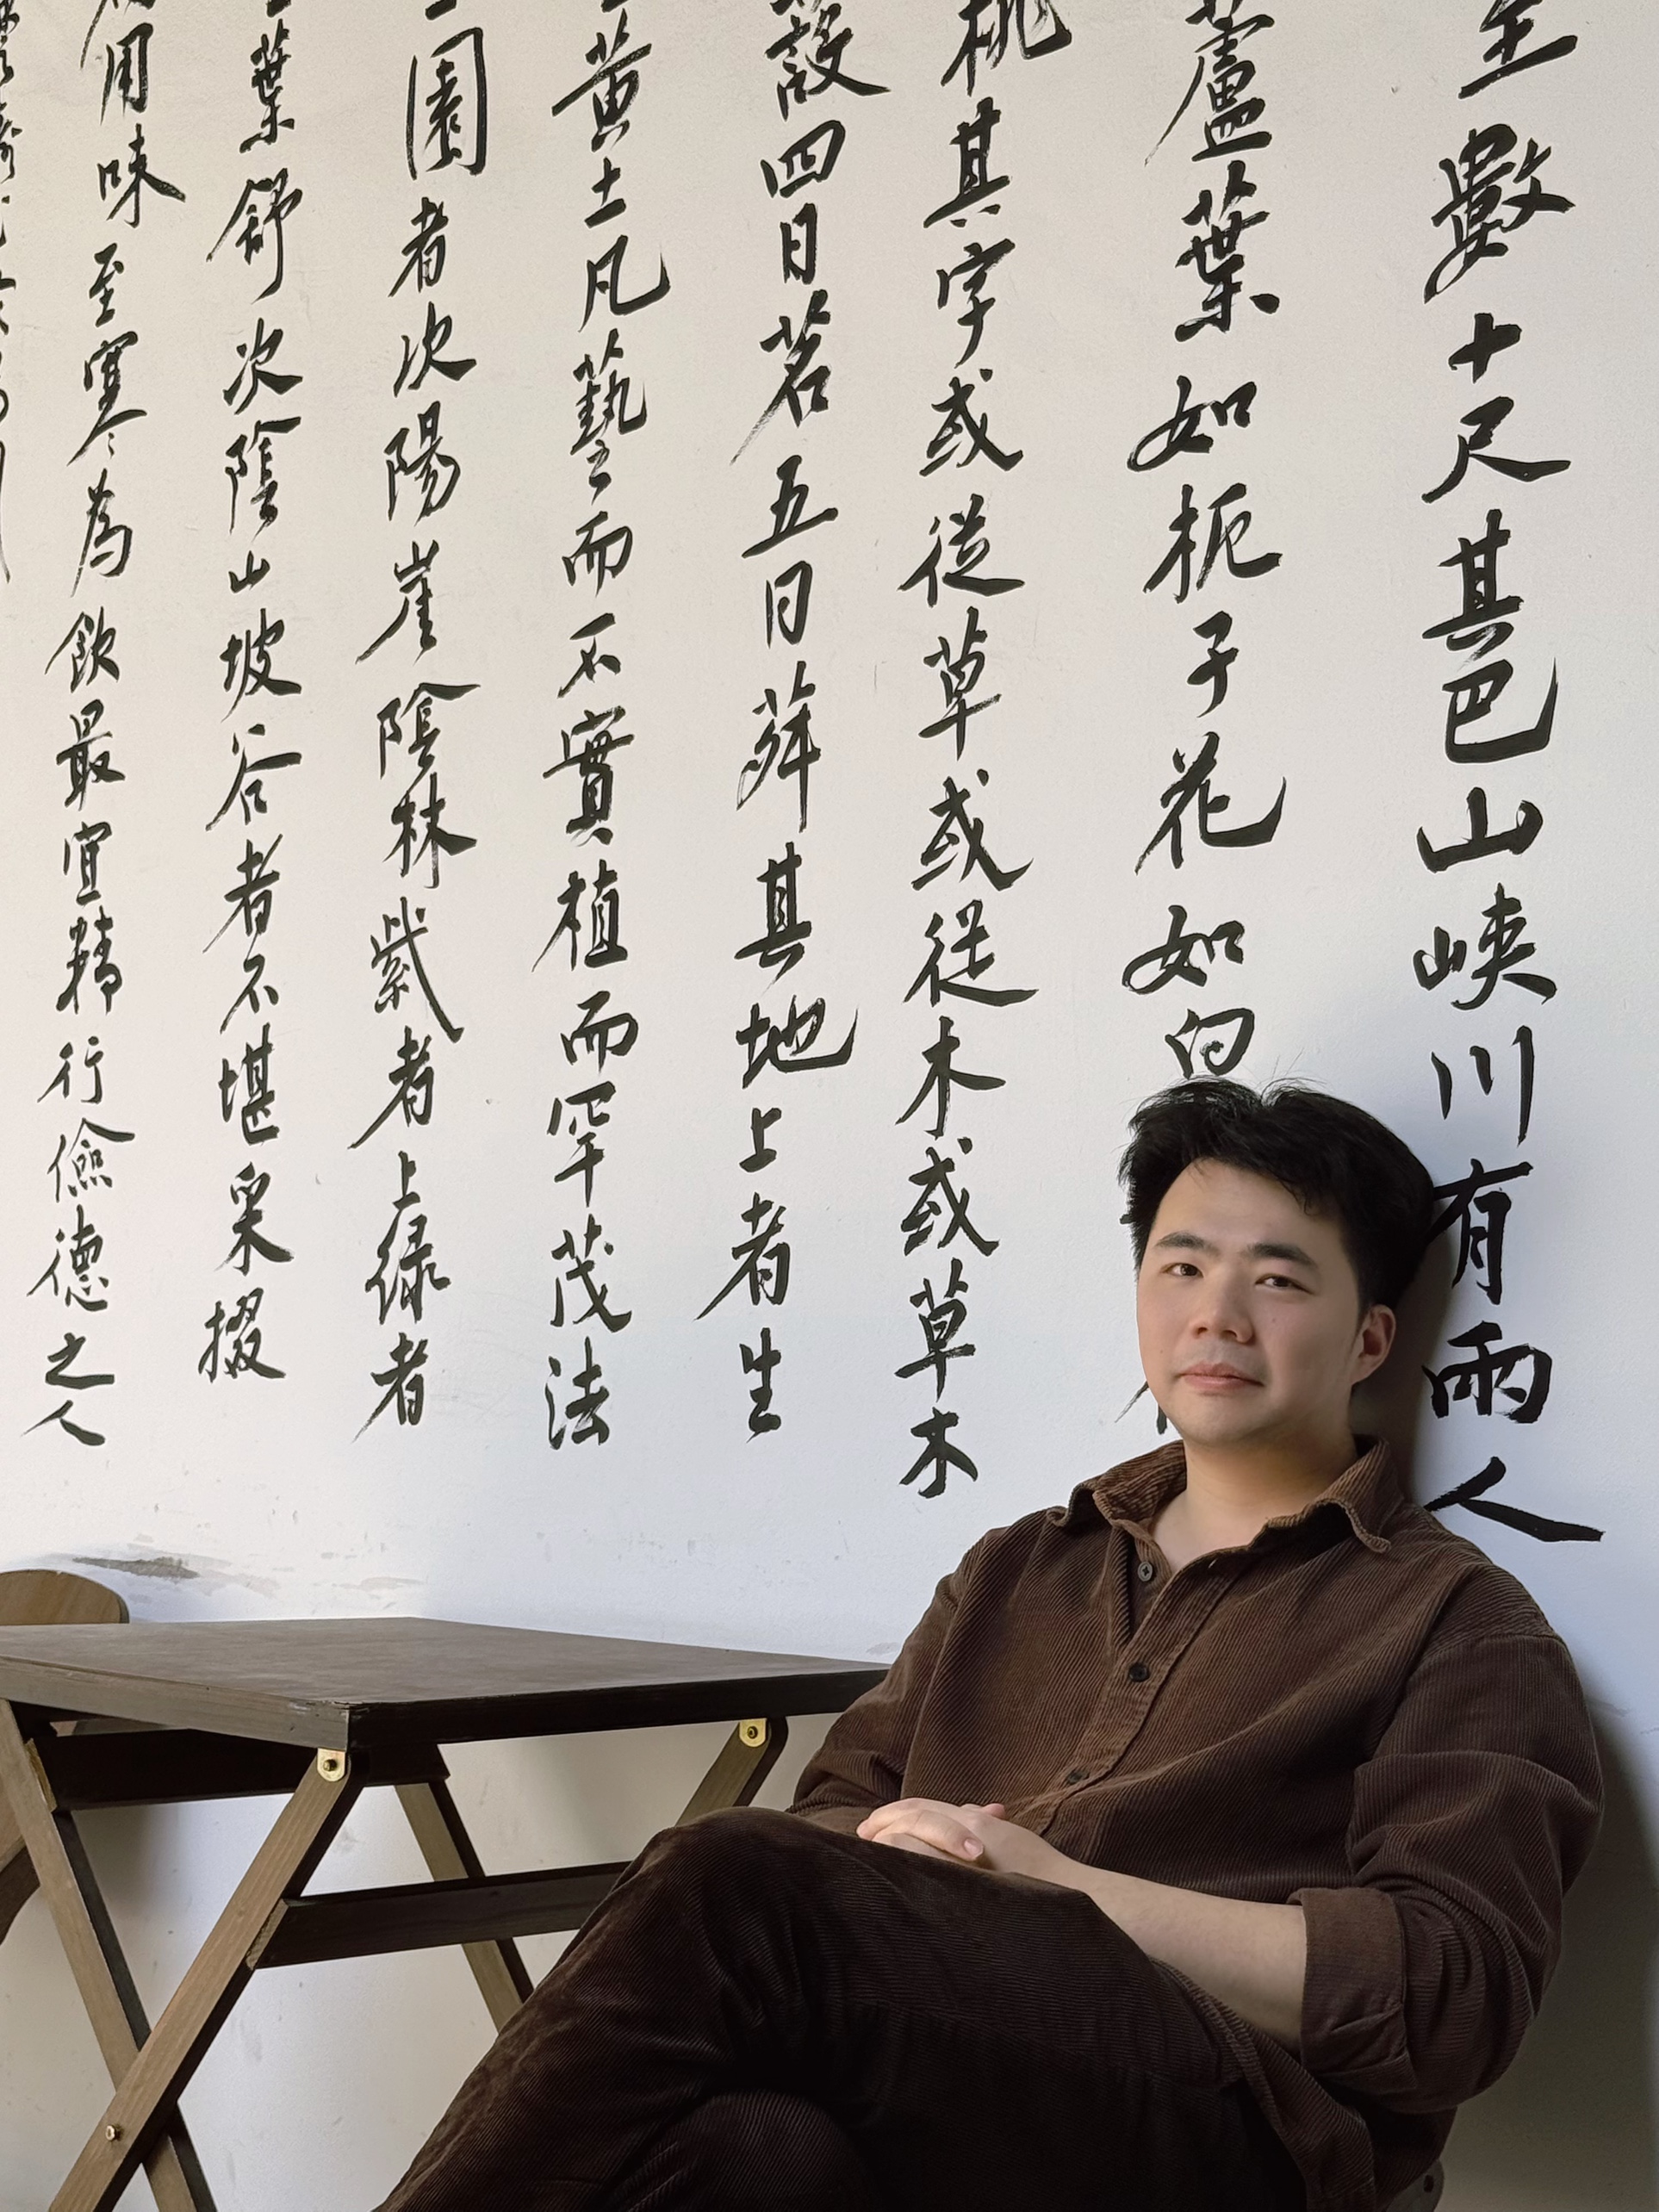 至數十尺其巴山峽川有兩人
蘆葉如枙子花如白
桃其字或從草或從木或草木
蔎四曰茗五曰荈其地上者生
黃土凡藝而不實植而罕茂法
園者次陽崖陰林紫者上綠者
葉舒次陰山坡谷者不堪采掇
用味至寒為飲最宜精行儉德之人